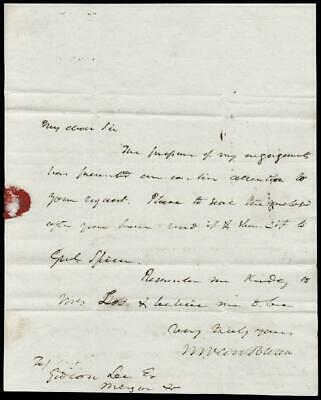 My dear Sir
The pressure of my engagements
has prevented an earlier attention to
your request. Please to seal the enclosed
after you have read it & send it to
Genl Spicer.
Remember me kindly to
Mrs Lee & believe me to be
Very truly yours
M Van Buren
To
Gideon Lee Es
Mayor &c